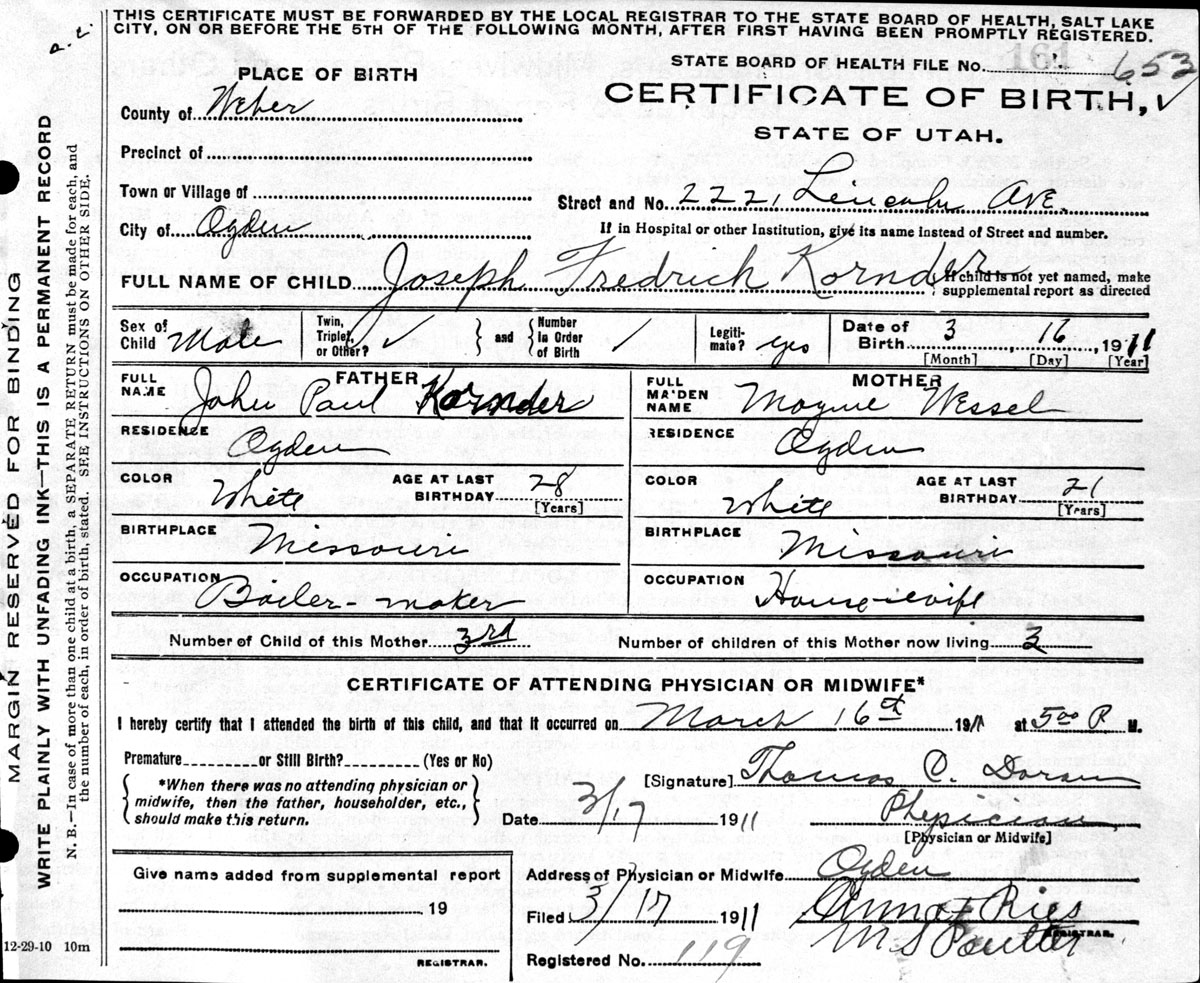 THIS CERTIFICATE MUST BE FORWARDED BY THE LOCAL REGISTRAR TO THE STATE BOARD OF HEALTH, SALT LAKE
CITY, ON OR BEFORE THE 5TH OF THE FOLLOWING MONTH, AFTER FIRST HAVING BEEN PROMPTLY REGISTERED.
MARGIN RESERVED FOR BINDING
WRITE PLAINLY WITH UNFADING INK—THIS IS A PERMANENT RECORD
N. B.—In case of more than one child at a birth, a SEPARATE RETURN must be made for each, and
the number of each, in order of birth, stated. SEE INSTRUCTIONS ON OTHER SIDE.
PLACE OF BIRTH
County of Weber
Precinct of
Town or Village of
City of Ogden
STATE BOARD OF HEALTH FILE No. 161 653
CERTIFICATE OF BIRTH,
STATE OF UTAH.
Street and No. 2221 Lincoln Ave
If in Hospital or other Institution, give its name instead of Street and number.
FULL NAME OF CHILD Joseph Fredrich Kornder
If child is not yet named, make
supplemental report as directed
Sex of Child Male
Twin, Triplet, or Other?
and
Number in Order of Birth
Legitimate? yes
Date of Birth 3, 16, 1911
[Month] [Day] [Year]
FATHER
FULL NAME John Paul Kornder
RESIDENCE Ogden
COLOR White
AGE AT LAST BIRTHDAY 28
[Years]
BIRTHPLACE Missouri
OCCUPATION Boiler-maker
MOTHER
FULL MAIDEN NAME Mayme Wessel
RESIDENCE Ogden
COLOR White
AGE AT LAST BIRTHDAY 21
[Years]
BIRTHPLACE Missouri
OCCUPATION Housewife
Number of Child of this Mother 3rd
Number of children of this Mother now living 3
CERTIFICATE OF ATTENDING PHYSICIAN OR MIDWIFE*
I hereby certify that I attended the birth of this child, and that it occurred on March 16th 1911 at 5:00 P M.
Premature or Still Birth? (Yes or No)
*When there was no attending physician or
midwife, then the father, householder, etc.,
should make this return.
[Signature] Thomas C. Doran
Date 3/17 1911
Physician
[Physician or Midwife]
Give name added from supplemental report
19
REGISTRAR.
Address of Physician or Midwife Ogden
Filed 3/17 1911
Anna F Ries
REGISTRAR.
Registered No. 119
12-29-10 10m